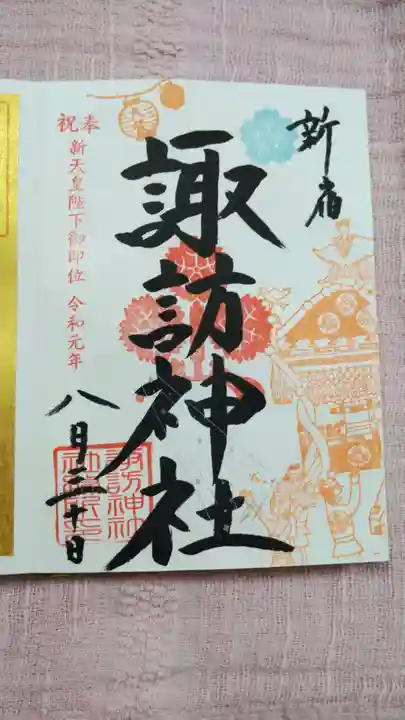 新宿
諏訪神社
奉祝
新天皇陛下御即位 令和元年
八月三十日
諏訪神社